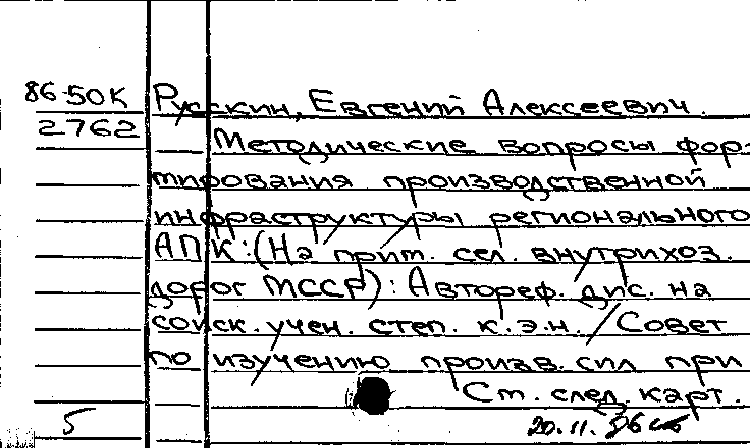 86-50К
2762
Русскин, Евгений Алексеевич.
Методические вопросы фор-
мирования производственной
инфраструктуры регионального
АПК: (На прим. сел. внутрихоз.
дорог МССР): Автореф. дис. на
соиск. учен. степ. к.э.н. / Совет
по изучению произв. сил при
См. след. карт.
5
20.11.86